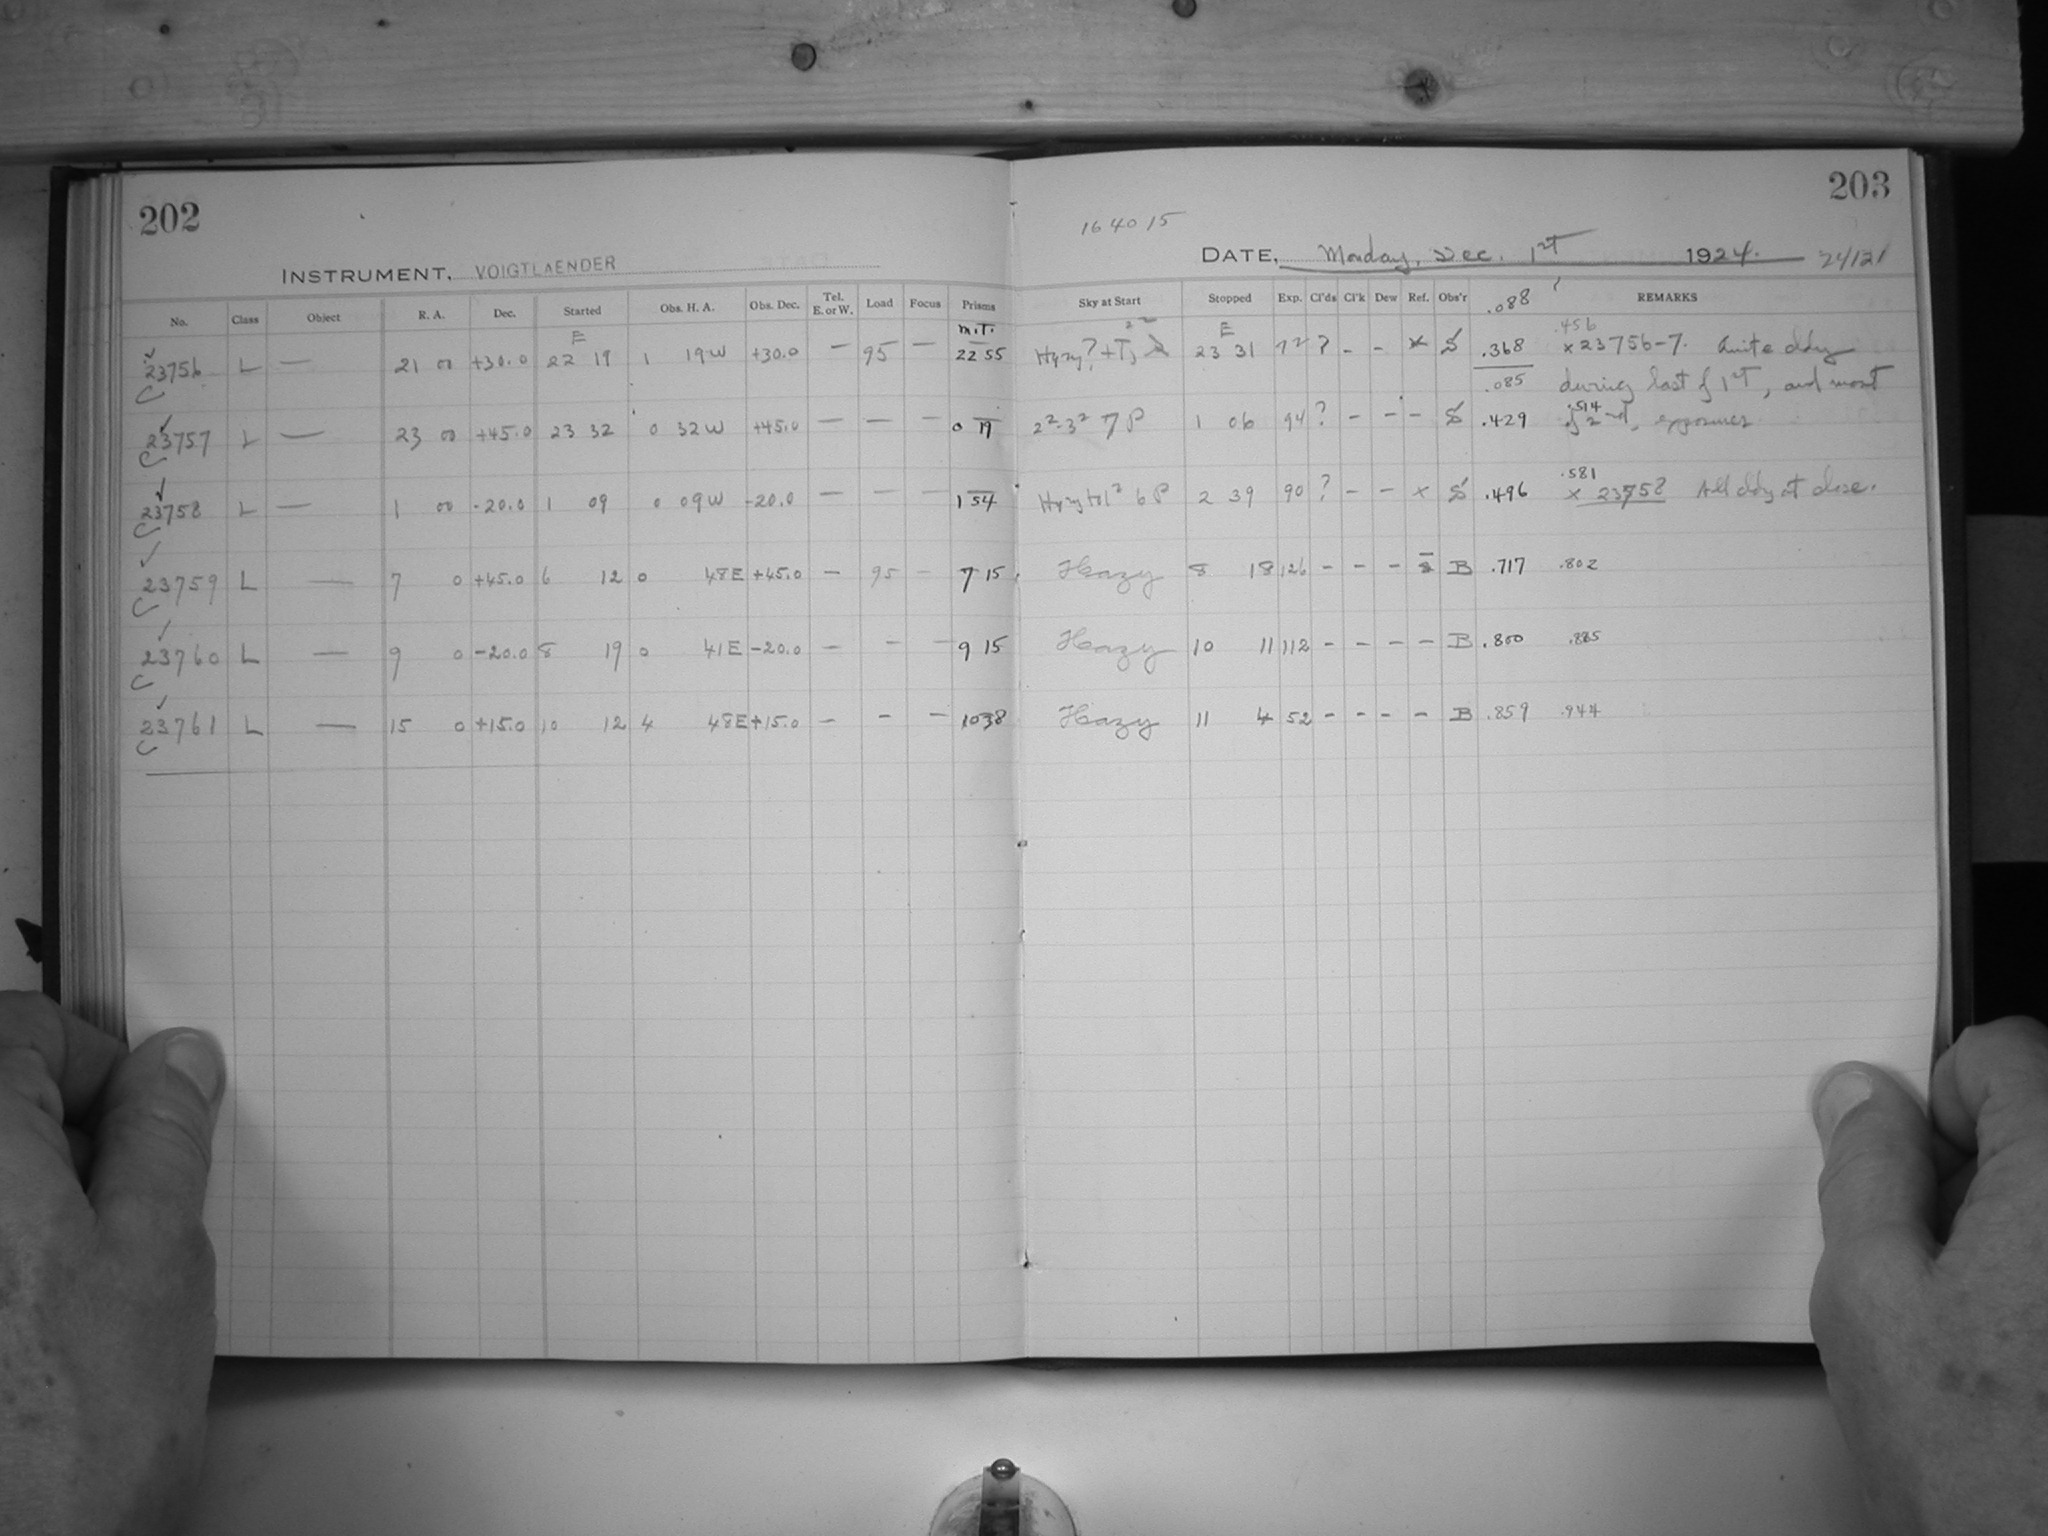 202
INSTRUMENT, VOIGTLAENDER
No. Class Object R. A. Dec. Started Obs. H. A. Obs. Dec. Tel. E. or W. Load Focus Prisms
E M.T.
23756 L — 21 00 +30.0 22 19 1 19W +30.0 — 95 — 22 55
23757 L — 23 00 +45.0 23 32 0 32W +45.0 — — — 0 19
23758 L — 1 00 -20.0 1 09 0 09W -20.0 — — — 1 54
23759 L — 7 0 +45.0 6 12 0 48E +45.0 — 95 — 7 15
23760 L — 9 0 -20.0 8 19 0 41E -20.0 — — — 9 15
23761 L — 15 0 +15.0 10 12 4 48E +15.0 — — — 10 38
203
16 40 15
DATE, Monday, Dec. 1st 1924. 24/12/1
Sky at Start Stopped Exp. Cl'ds Cl'k Dew Ref. Obs'r .088 REMARKS
E .456
Hazy? 23 31 72 ? - - x S .368 x 23756-7. Quite cldy
.085 during last of 1st, and most
2²-3² 7 P 1 06 94 ? - - - S .429 .514 of 2nd, exposures
.581
6 P 2 39 90 ? - - x S .496 x 23758 All cldy at close.
Hazy 8 18 126 - - - - B .717 .802
Hazy 10 11 112 - - - - B .800 .885
Hazy 11 4 52 - - - - B .859 .944